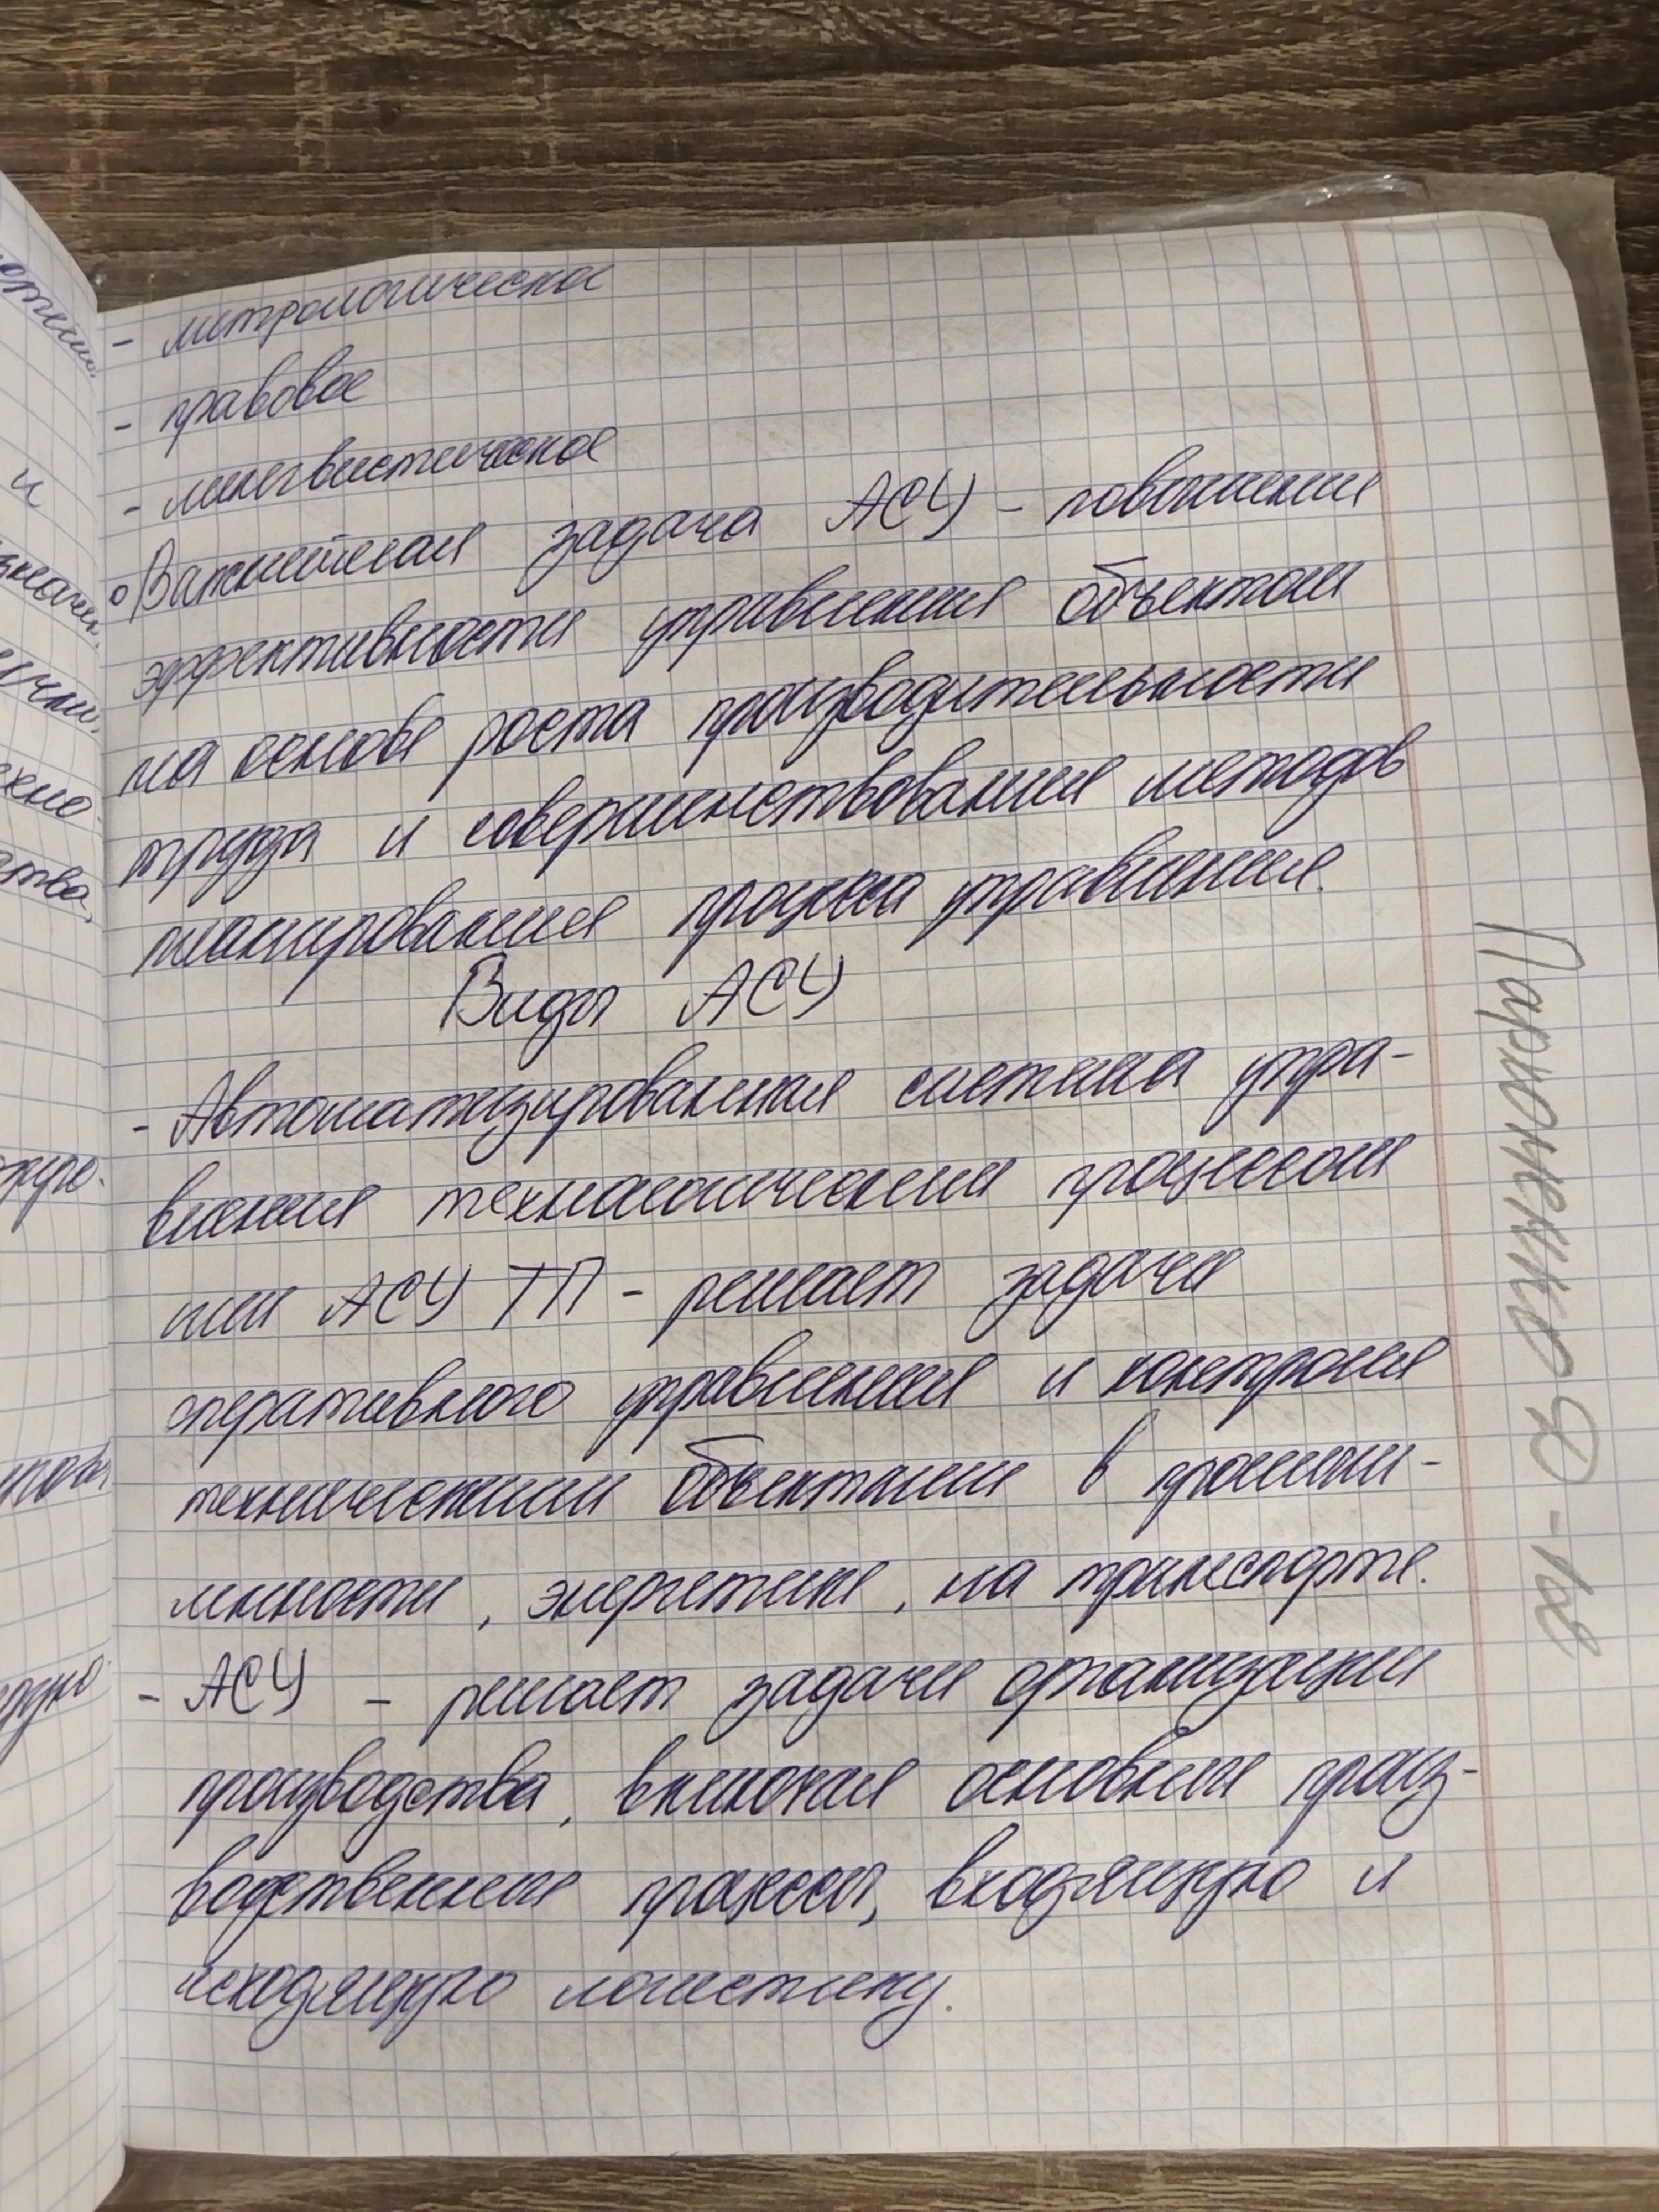 - метрологическое
- правовое
- лингвистическое
° Важнейшая задача АСУ - повышение
эффективности управления объектом
на основе роста производительности
труда и совершенствования методов
планирования процесса управления.
Виды АСУ
- Автоматизированная система упра-
вления технологическим процессом
или АСУ ТП - решает задачи
оперативного управления и контроля
техническими объектами в промыш-
ленности, энергетике, на транспорте.
- АСУ - решает задачи организации
производства, включая основные произ-
водственные процессы, входящую и
исходящую логистику.